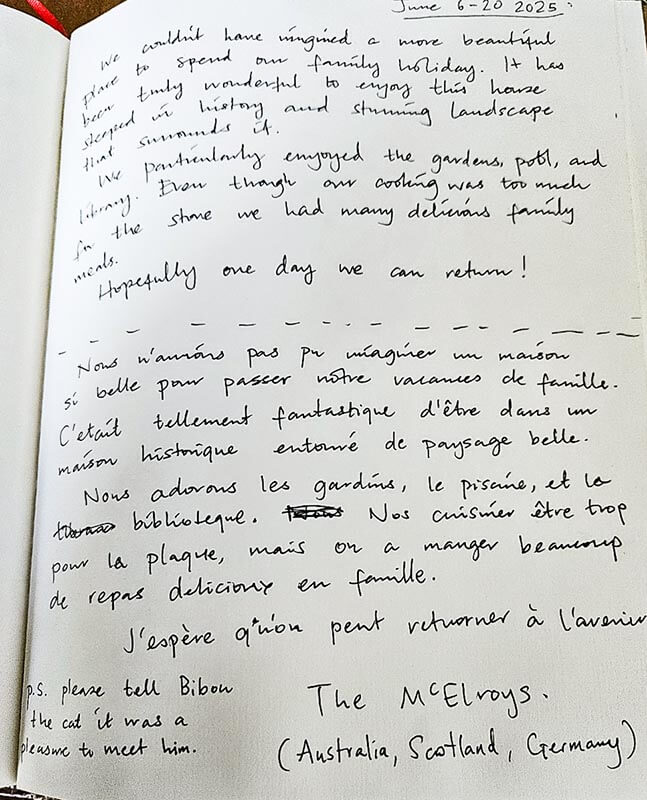 June 6-20 2025.
We couldn't have imgined a more beautiful
place to spend our family holiday. It has
been truly wonderful to enjoy this house
steeped in history and stunning landscape
that surrounds it.
We particularly enjoyed the gardens, pool, and
library. Even though our cooking was too much
for the stove we had many delicious family
meals.
Hopefully one day we can return!
Nous n'aurions pas pu imaginer un maison
si belle pour passer nôtre vacances de famille.
C'etait tellement fantastique d'être dans un
maison historique entouré de paysage belle.
Nous adorons les gardins, le piscine, et la
biblioteque. Nos cuisinier être trop
pour la plaque, mais on a manger beaucoup
de repas delicioux en famille.
J'espère qu'on peut retourner à l'avenir
p.s. please tell Bibou
the cat it was a
pleasure to meet him.
The McElroys.
(Australia, Scotland, Germany)